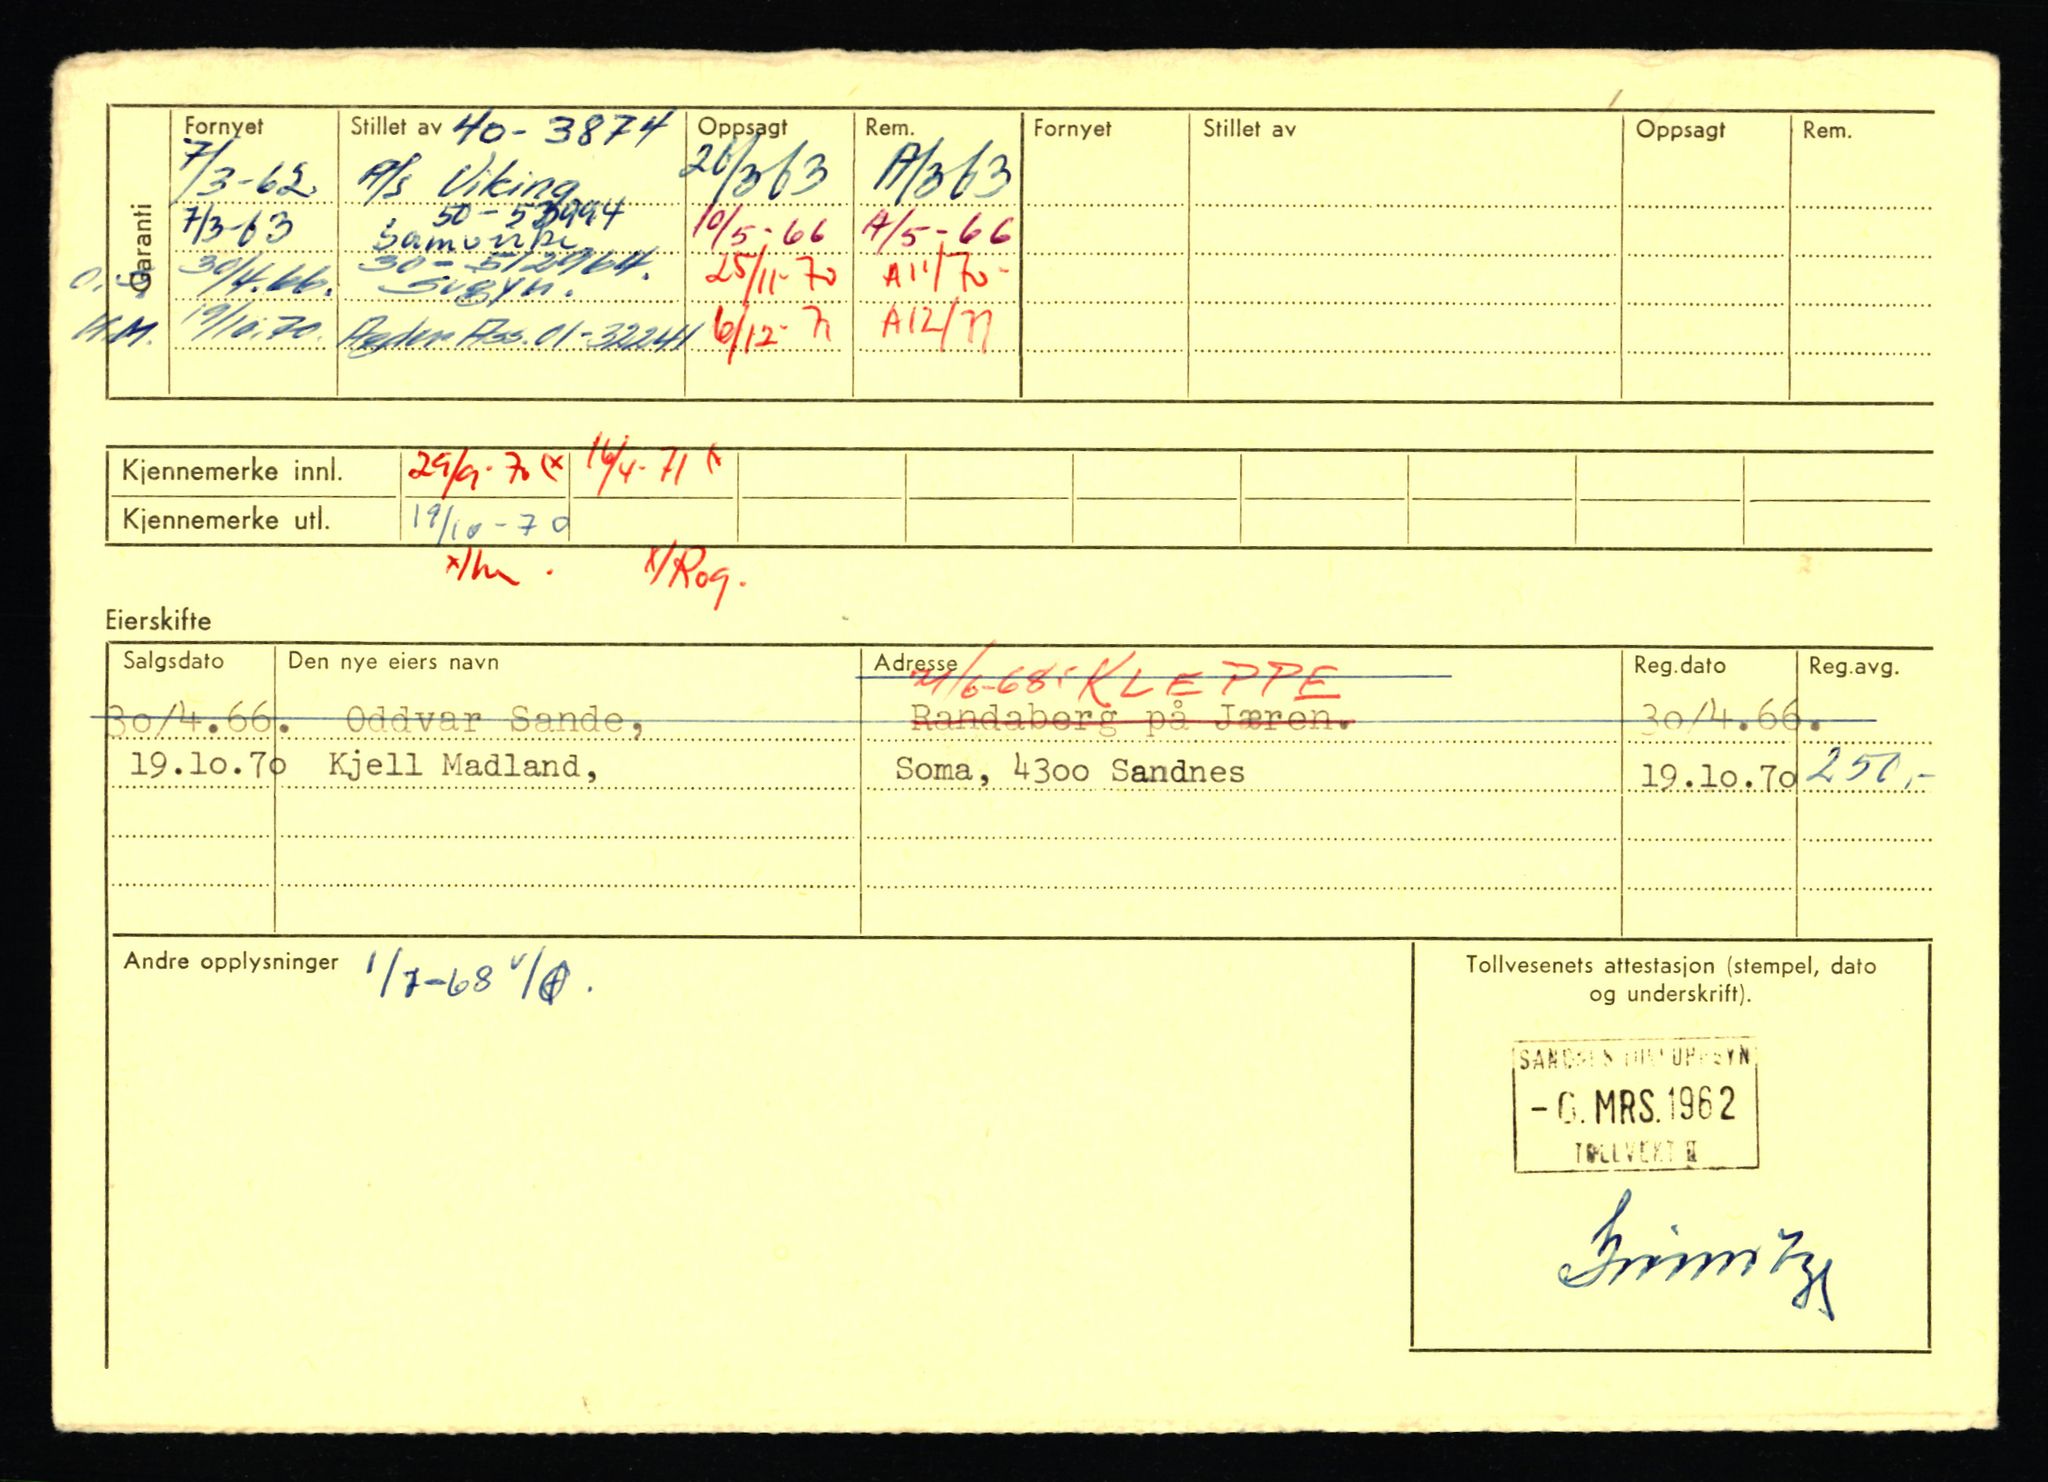 Garanti
Fornyet Stillet av 40-3874 Oppsagt Rem. Fornyet Stillet av Oppsagt Rem.
7/3-62. A/s Viking 26/3 63 A/3 63
7/3-63 50-53994 Samvirke 10/5-66 A/5-66
O.S. 30/4.66. 30-512964. Sigyn. 25/11-70 A11/70-
K.M. 19/10.70. Agder Ass. 01-32241 6/12-71 A12/71
Kjennemerke innl. 29/9-70 (x 16/4-71 (x
Kjennemerke utl. 19/10-70
x/Rog.
Eierskifte
Salgsdato Den nye eiers navn Adresse Reg.dato Reg.avg.
21/6-68: KLEPPE
30/4.66. Oddvar Sande, Randaberg på Jæren. 30/4.66.
19.10.70 Kjell Madland, Soma, 4300 Sandnes 19.10.70 250,-
Andre opplysninger 1/7-68
Tollvesenets attestasjon (stempel, dato
og underskrift).
SANDNES TOLLOPPSYN
-6. MRS. 1962
TOLLVEKT II